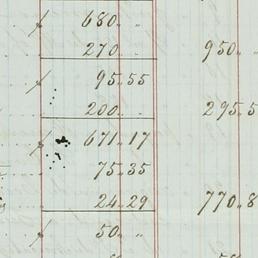 680 " "
270 " 950 "
95 55
200 " 295.5
671 17
75 35
24 29 770.8
50 "